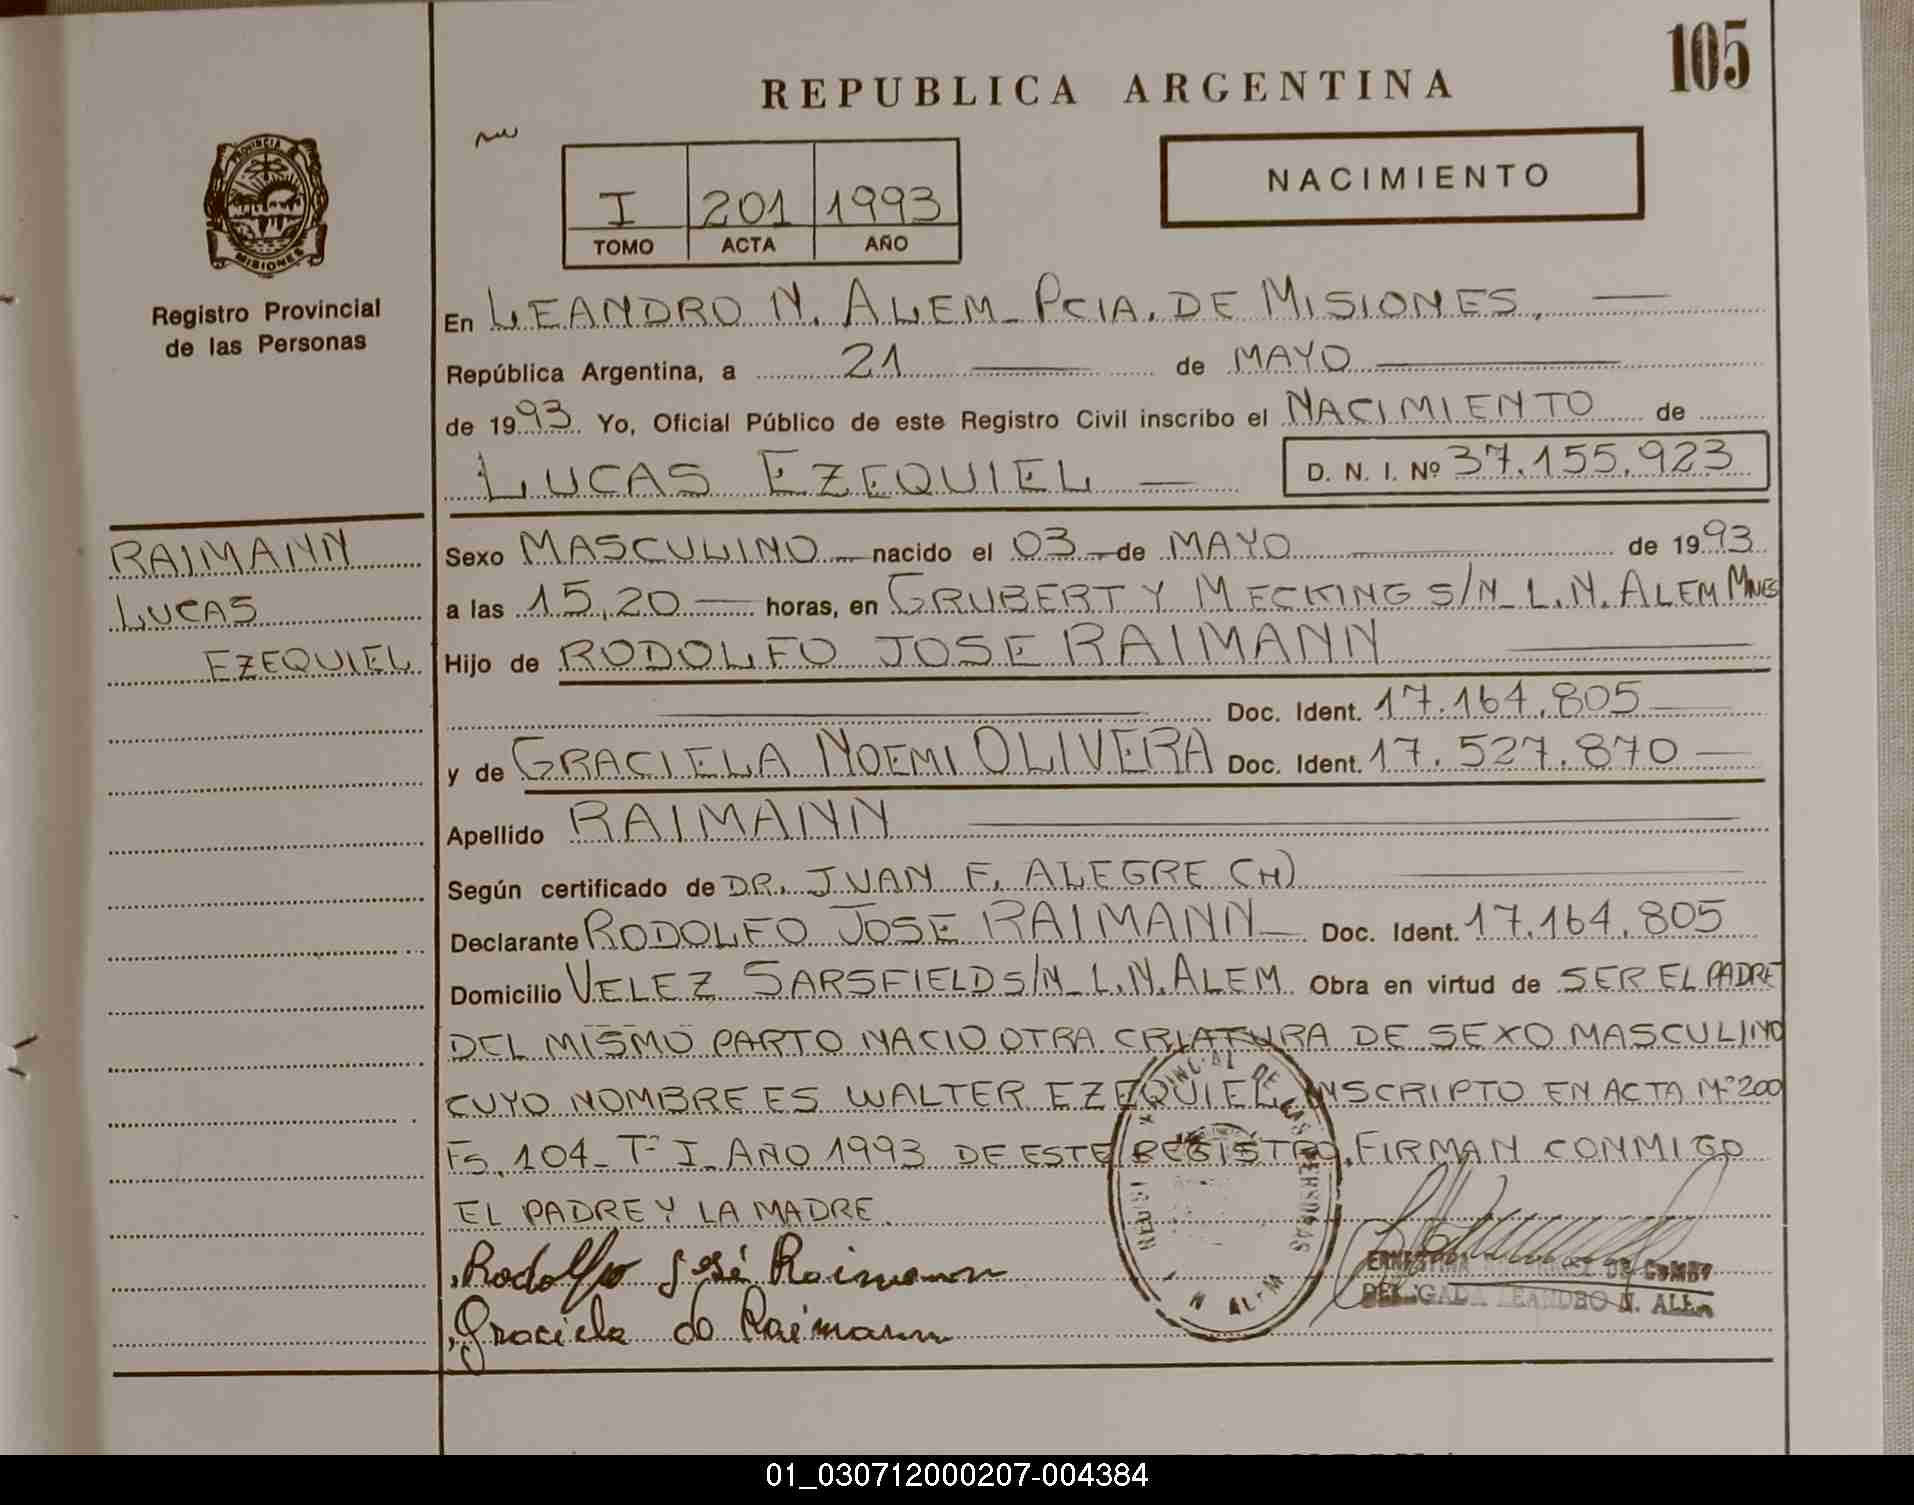 105
REPUBLICA ARGENTINA
NACIMIENTO
I 201 1993
TOMO ACTA AÑO
PROVINCIA DE
MISIONES
Registro Provincial
de las Personas
En LEANDRO N. ALEM_ PCIA. DE MISIONES.
República Argentina, a 21 de MAYO
de 1993 Yo, Oficial Público de este Registro Civil inscribo el NACIMIENTO de
LUCAS EZEQUIEL D. N. I. Nº 37.155.923
RAIMANN
LUCAS
EZEQUIEL
Sexo MASCULINO nacido el 03 de MAYO de 1993
a las 15,20 horas, en GRUBERT Y MECKING S/N_ L.N. ALEM MNES
Hijo de RODOLFO JOSE RAIMANN
Doc. Ident. 17.164.805
y de GRACIELA NOEMI OLIVERA Doc. Ident. 17.527.870
Apellido RAIMANN
Según certificado de DR. JUAN F. ALEGRE (H)
Declarante RODOLFO JOSE RAIMANN Doc. Ident. 17.164.805
Domicilio VELEZ SARSFIELD S/N_ L.N. ALEM Obra en virtud de SER EL PADRE
DEL MISMO PARTO NACIO OTRA CRIATURA DE SEXO MASCULINO
CUYO NOMBRE ES WALTER EZEQUIEL, INSCRIPTO EN ACTA Nº 200
Fs. 104_ Tº I_ AÑO 1993 DE ESTE REGISTRO. FIRMAN CONMIGO
EL PADRE Y LA MADRE
Rodolfo José Raimann
Graciela do Raimann
DE LAS PERSONAS
N ALEM
DELEGADA LEANDRO N. ALEM
01_030712000207-004384